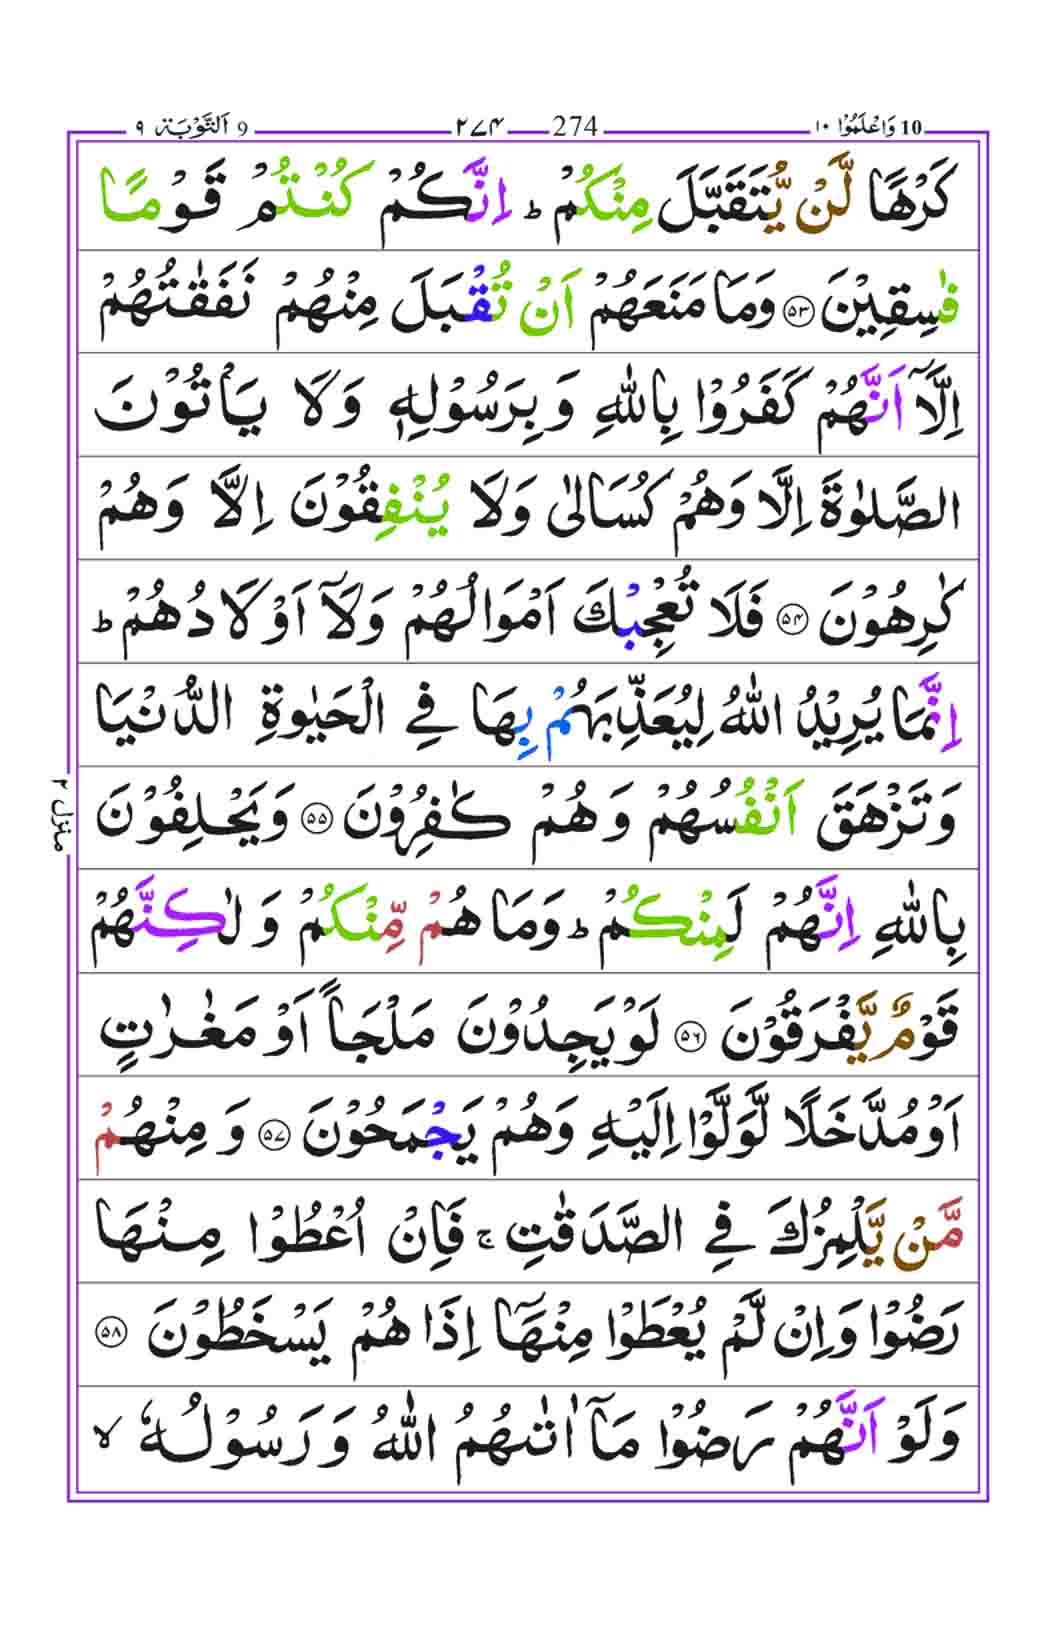 10 وَاعْلَمُوْۤا ۱۰ 274 ۲۷۴ 9 اَلتَّوْبَة ۹
كَرْهًا لَّنْ يُّتَقَبَّلَ مِنْكُمْ ؕ اِنَّكُمْ كُنْتُمْ قَوْمًا
فٰسِقِيْنَ ۵۳ وَمَا مَنَعَهُمْ اَنْ تُقْبَلَ مِنْهُمْ نَفَقٰتُهُمْ
اِلَّاۤ اَنَّهُمْ كَفَرُوْا بِاللّٰهِ وَ بِرَسُوْلِهٖ وَلَا يَاْتُوْنَ
الصَّلٰوةَ اِلَّا وَهُمْ كُسَالٰى وَلَا يُنْفِقُوْنَ اِلَّا وَهُمْ
كٰرِهُوْنَ ۵۴ فَلَا تُعْجِبْكَ اَمْوَالُهُمْ وَلَاۤ اَوْلَادُهُمْ ؕ
اِنَّمَا يُرِيْدُ اللّٰهُ لِيُعَذِّبَهُمْ بِهَا فِي الْحَيٰوةِ الدُّنْيَا
وَتَزْهَقَ اَنْفُسُهُمْ وَهُمْ كٰفِرُوْنَ ۵۵ وَيَحْلِفُوْنَ
بِاللّٰهِ اِنَّهُمْ لَمِنْكُمْ ؕ وَمَا هُمْ مِّنْكُمْ وَ لٰكِنَّهُمْ
قَوْمٌ يَّفْرَقُوْنَ ۵۶ لَوْ يَجِدُوْنَ مَلْجَاً اَوْ مَغٰرٰتٍ
اَوْ مُدَّخَلًا لَّوَلَّوْا اِلَيْهِ وَهُمْ يَجْمَحُوْنَ ۵۷ وَ مِنْهُمْ
مَّنْ يَّلْمِزُكَ فِي الصَّدَقٰتِ ۚ فَاِنْ اُعْطُوْا مِنْهَا
رَضُوْا وَاِنْ لَّمْ يُعْطَوْا مِنْهَاۤ اِذَا هُمْ يَسْخَطُوْنَ ۵۸
وَلَوْ اَنَّهُمْ رَضُوْا مَاۤ اٰتٰىهُمُ اللّٰهُ وَ رَسُوْلُهٗ ۙ
منزل ۲